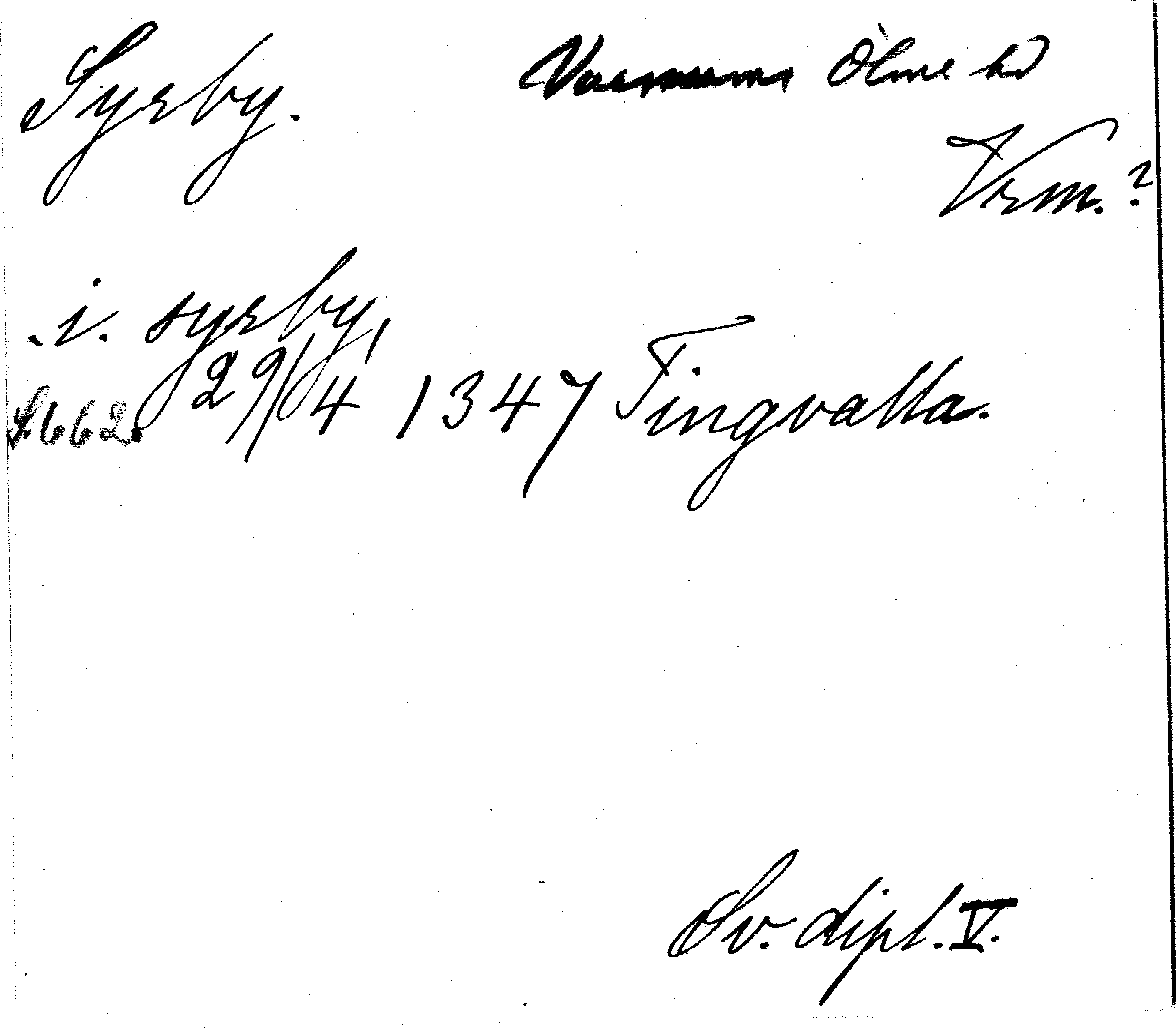 Syrby. Ölme hd
Vrm.?
i. syrby,
S. 662. 29/4 1347 Tingvalla.
Sv. dipl. V.